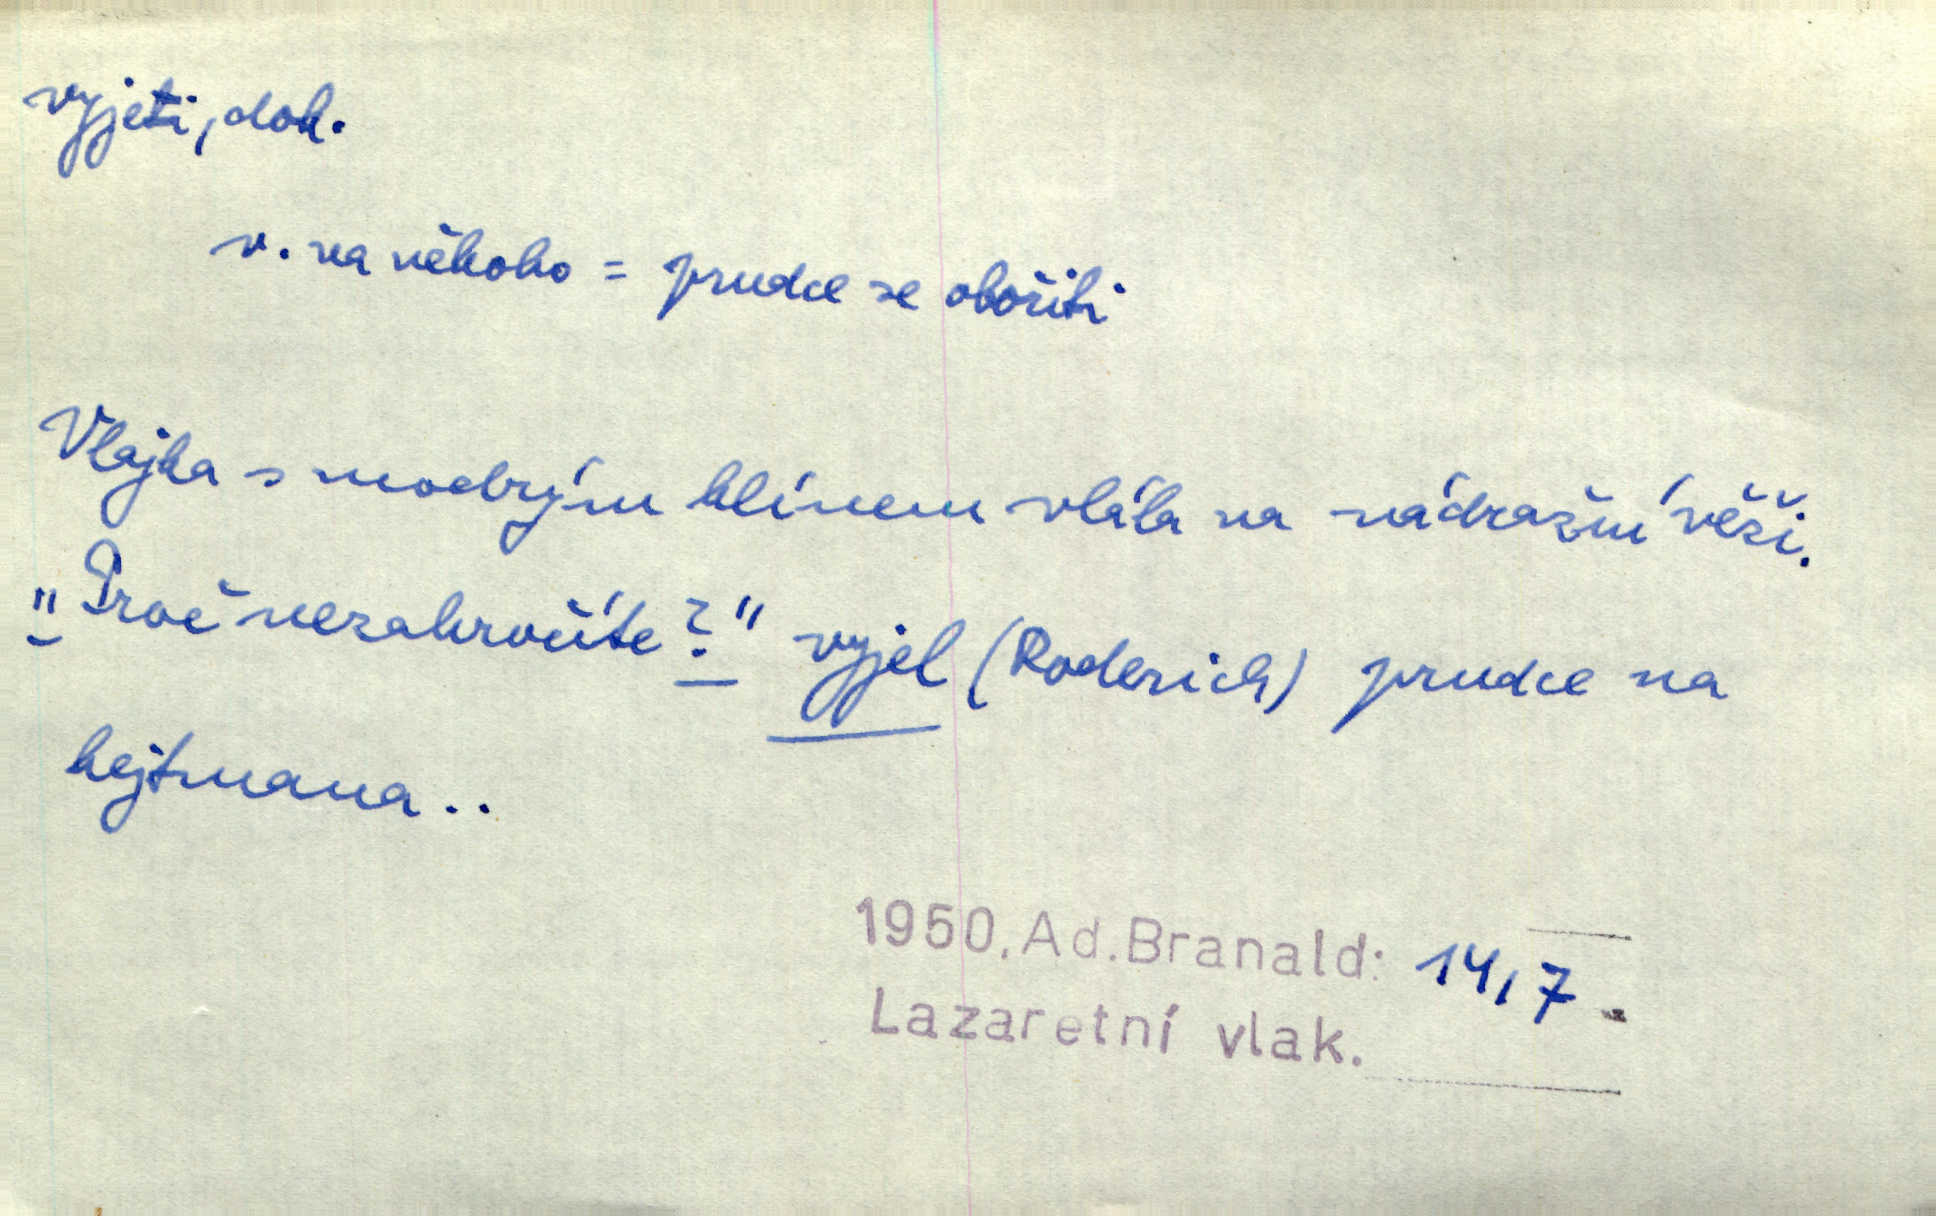 vyjeti, dok.
v. na někoho = prudce se obořiti
Vlajka s modrým klínem vlála na nádražní věži.
"Proč nezakročíte?" vyjel (Roderich) prudce na
hejtmana..
1950, Ad. Branald: 14, 7
Lazaretní vlak.